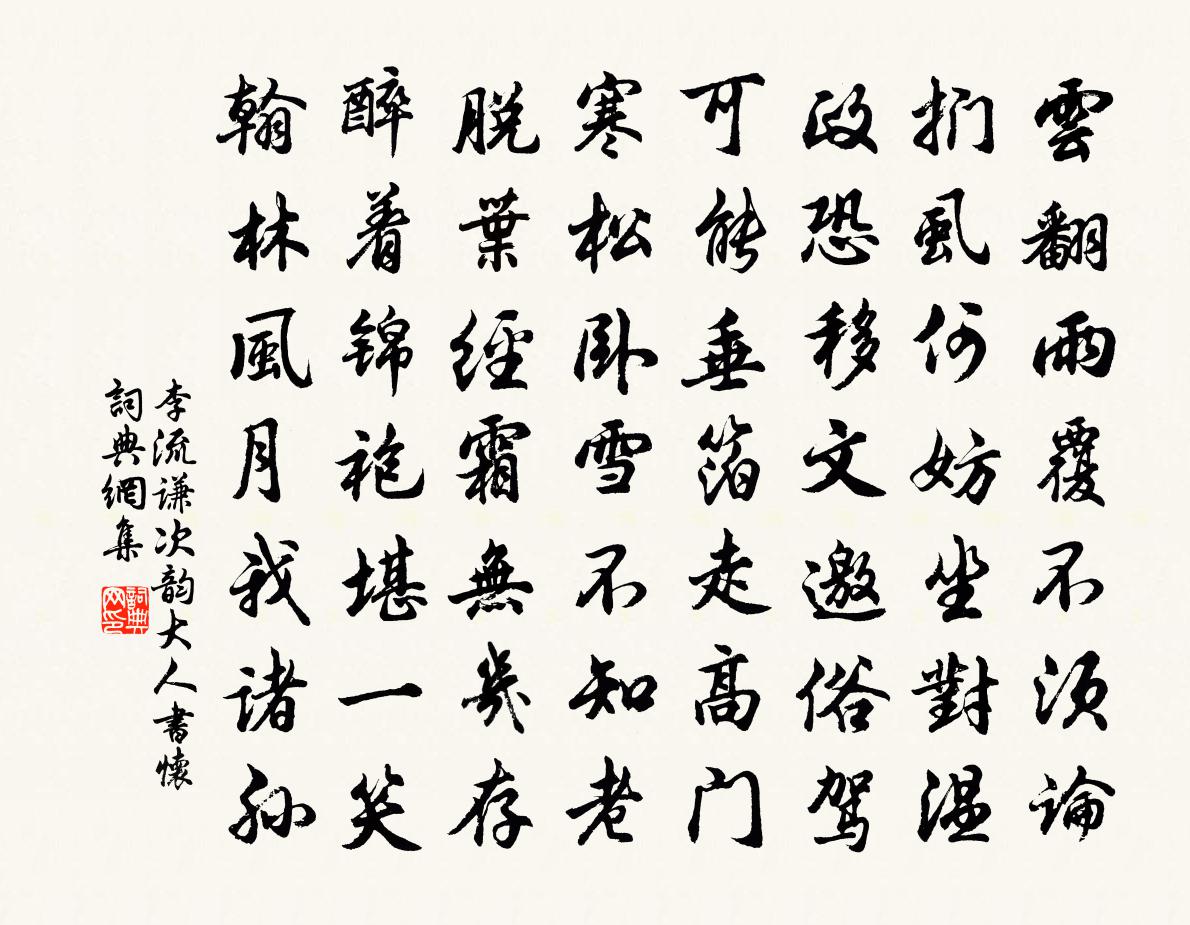 雲翻雨覆不須論
捫虱何妨坐對温
政恐移文邀俗驾
可能垂箔走高门
寒松卧雪不知老
脱葉經霜無幾存
醉着锦袍堪一笑
翰林風月我诸孙
李流谦次韵大人書懷
詞典網集
詞典网印